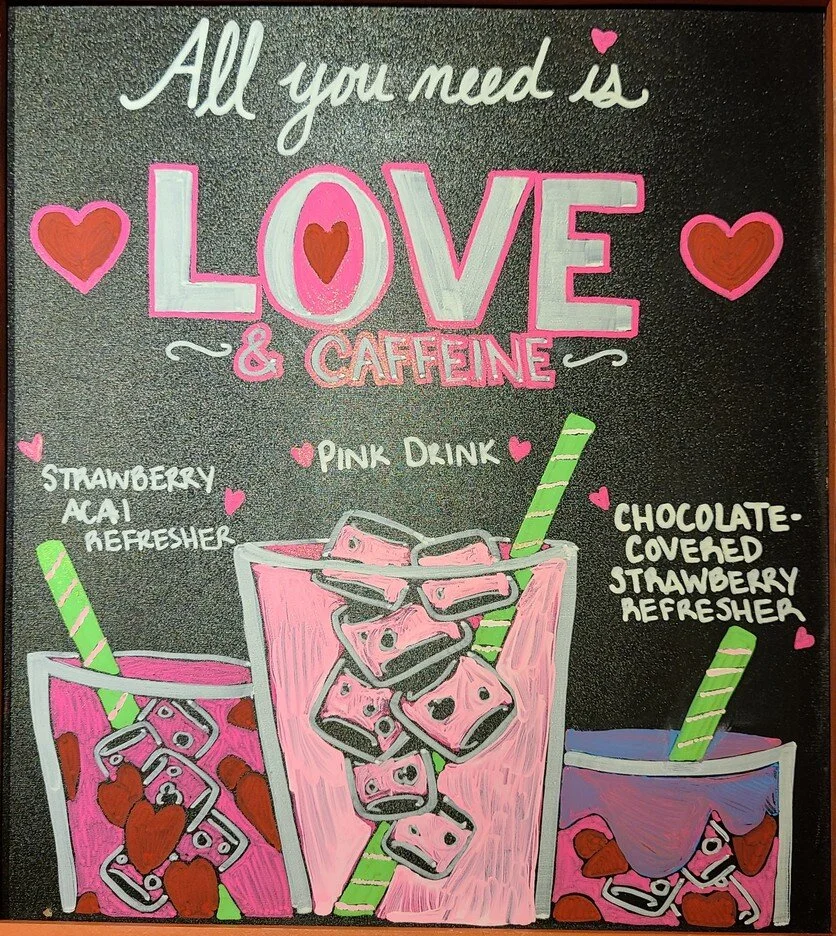 All you need is
LOVE
& CAFFEINE
PINK DRINK
STRAWBERRY
ACAI
REFRESHER
CHOCOLATE-
COVERED
STRAWBERRY
REFRESHER